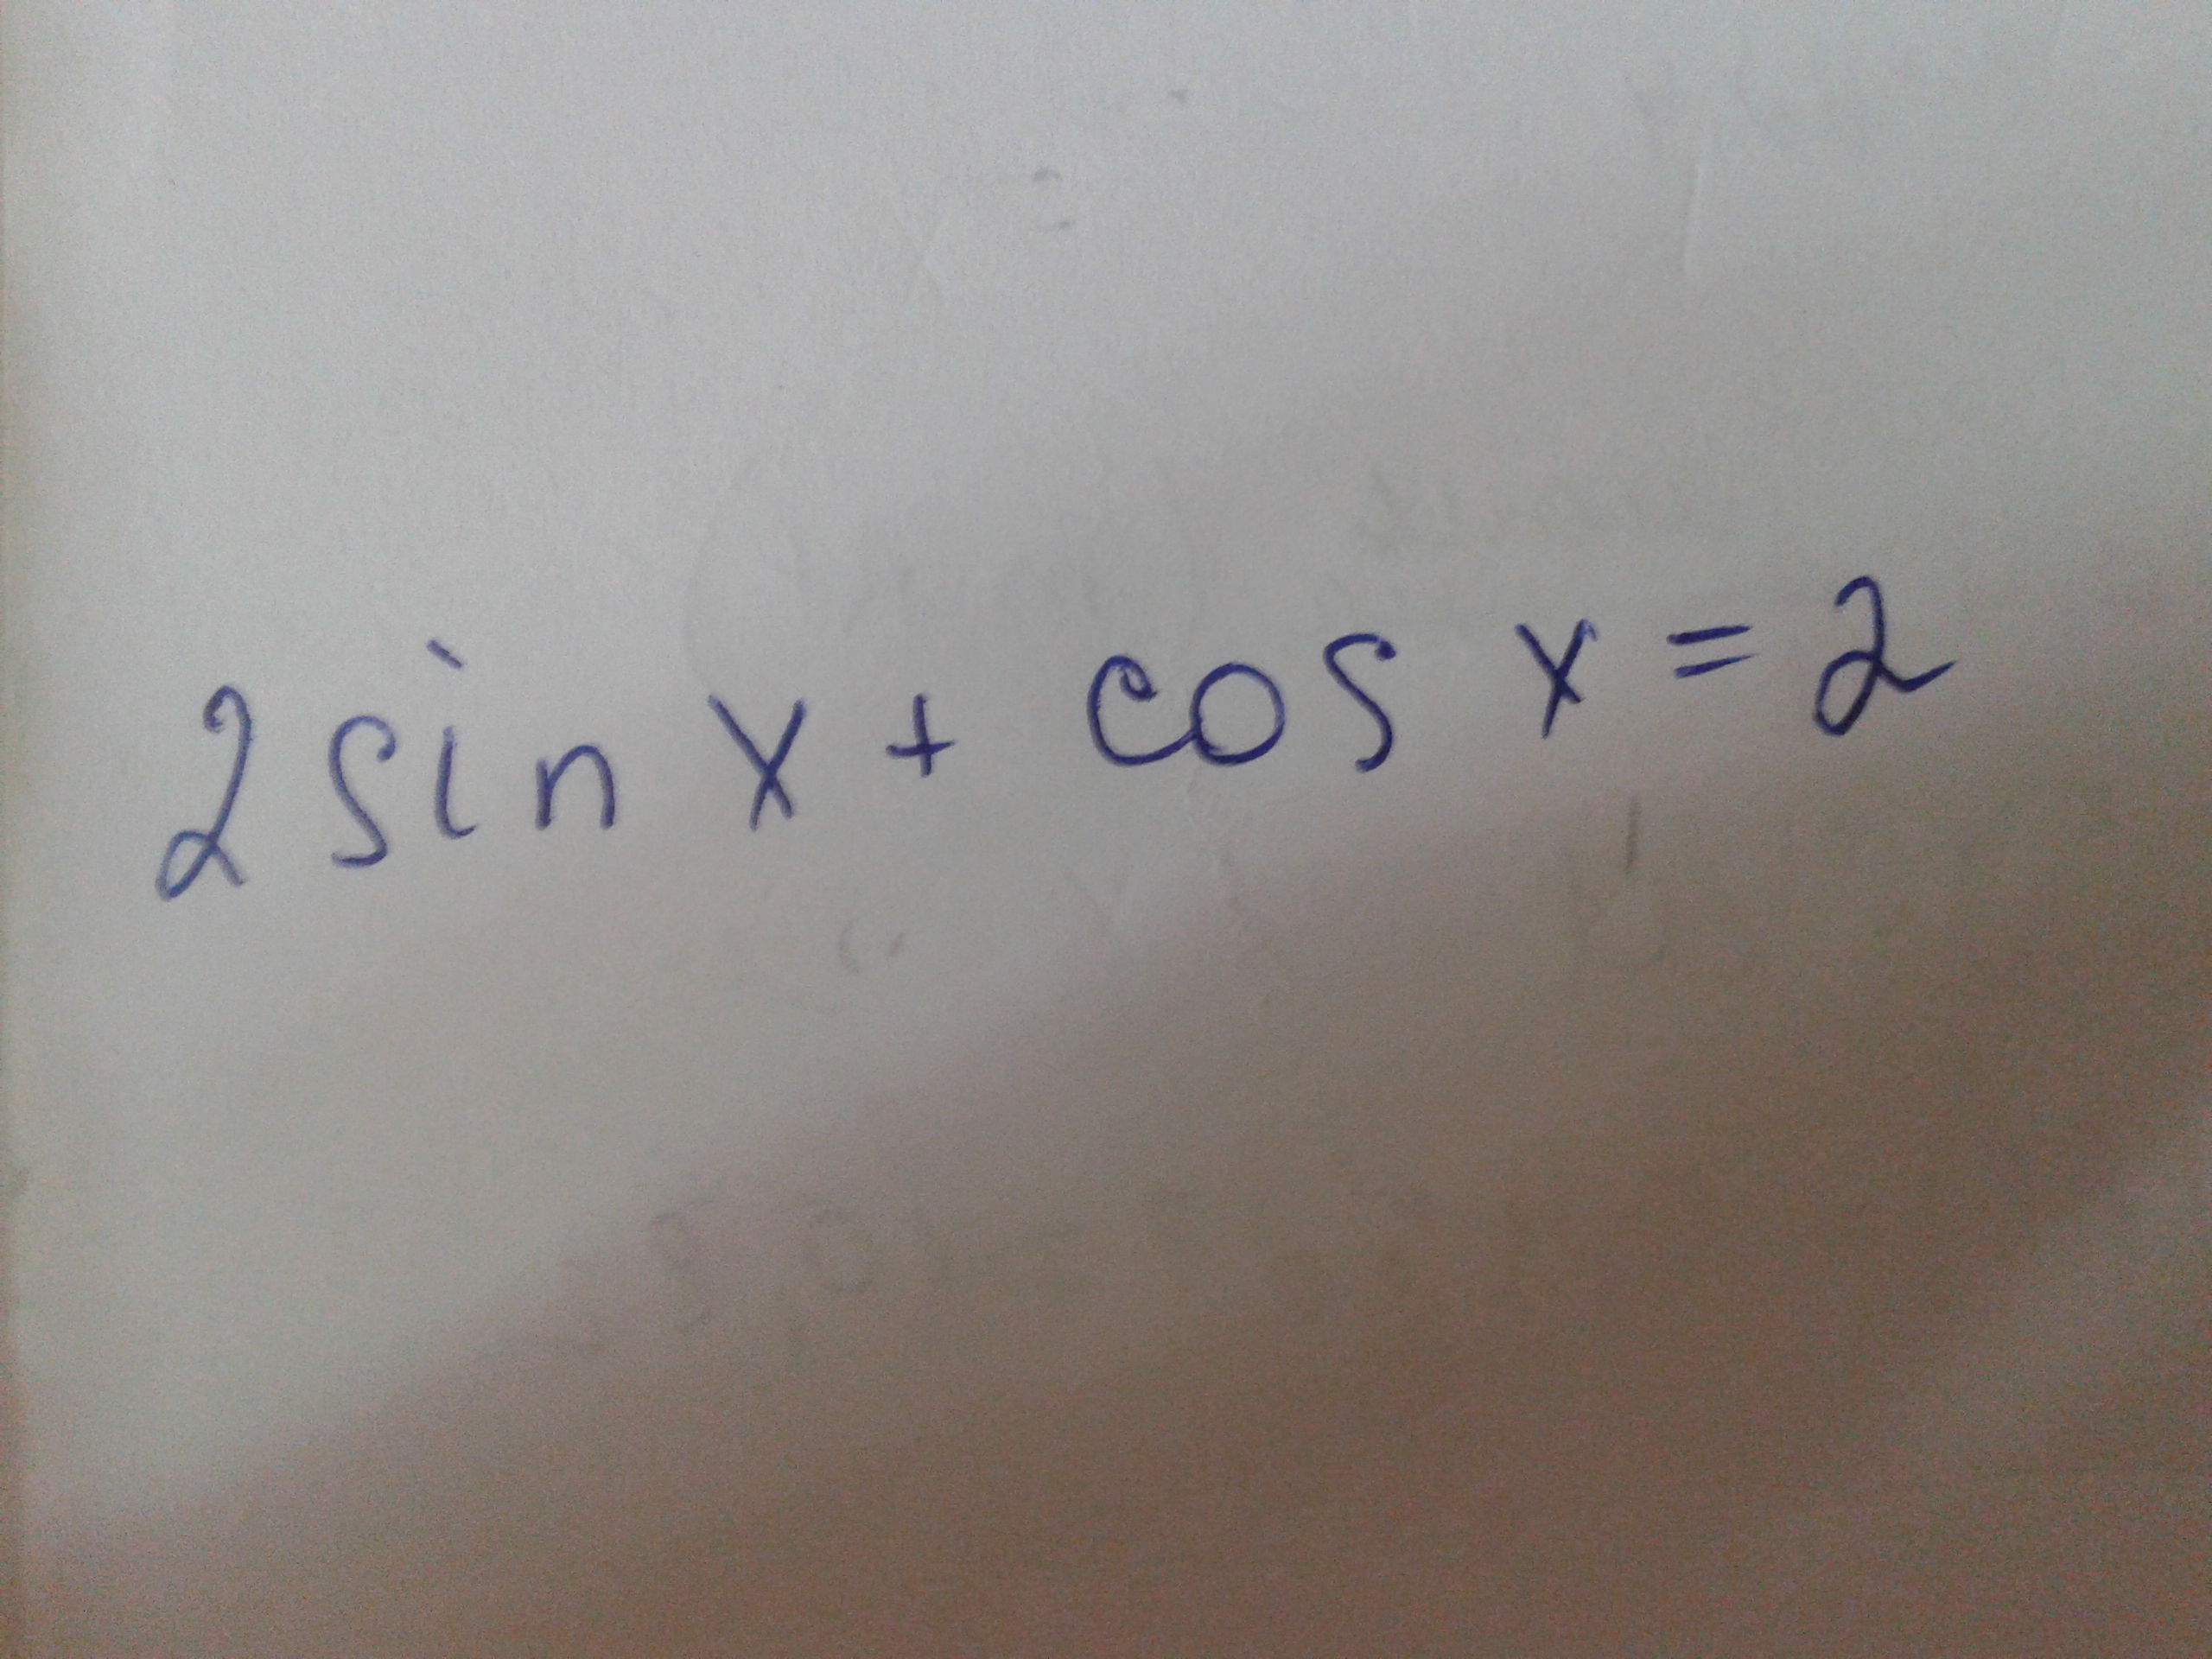 2 sin x + cos x = 2